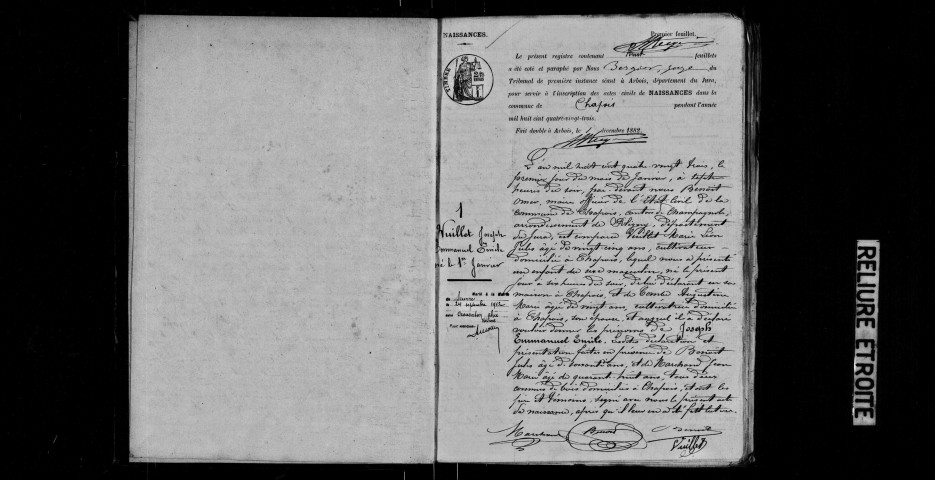 NAISSANCES.
Premier feuillet.
Le présent registre contenant huit feuillets
a été coté et paraphé par Nous Bergier, juge du
Tribunal de première instance séant à Arbois, département du Jura,
pour servir à l'inscription des actes civils de NAISSANCES dans la
commune de Chapois pendant l'année
mil huit cent quatre-vingt-trois.
Fait double à Arbois, le décembre 1882.
L'an mil huit cent quatre vingt trois, le
premier jour du mois de Janvier, à sept
heures du soir, par devant nous Benoit
Omer, maire officier de l'Etat Civil de la
commune de Chapois, canton de Champagnole,
arrondissement de Poligny, département
du Jura, est comparu Vuillet Marie Léon
Jules âgé de vingt cinq ans, cultivateur
domicilié à Chapois, lequel nous a présenté
un enfant du sexe masculin, né le présent
jour à heures du soir, de lui déclarant en sa
maison à Chapois, et de Comte Augustine
Marie âgée de vingt ans, cultivatrice domiciliée
à Chapois, son épouse et auquel il a déclaré
vouloir donner les prénoms de Joseph
Emmanuel Emile, lesdites déclaration et
présentation faites en présence de Benoit
Jules âgé de soixante ans, et de Marchand Léon
Marie âgé de quarante huit ans, tous deux
domiciliés à Chapois, et ont les
père et témoins, signé avec nous le présent acte
de naissance, après qu'il leur en a été fait lecture.
1
Vuillet Joseph
Emmanuel Emile
né le 1er Janvier
Marié à
le 24 septembre 1912
avec
Marchand Benoit Benoit
Vuillet
TIMBRE
RELIURE ETROITE